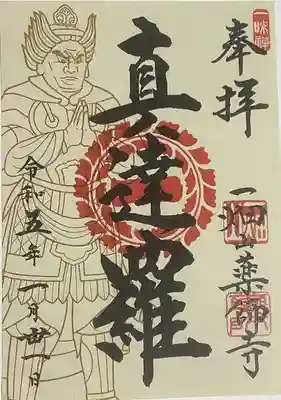 奉拝
真達羅
一畑山薬師寺
令和五年
一月廿一日